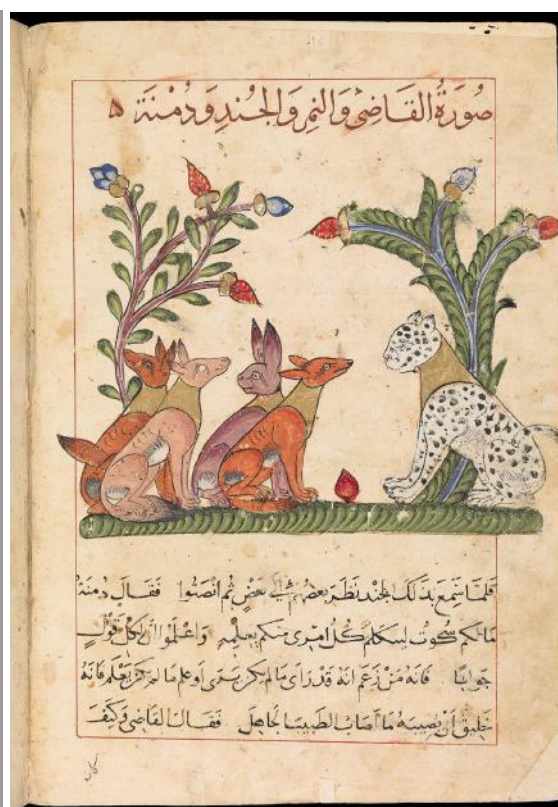 صُورَةُ القَاضِي وَالنمِر وَالجُندِ وَدُمْنَة ۵
فلمّا سَمِعَ بذلك الجند نَظَر بعضهم الي بَعضٍ ثم انْصَتُوا فقال دُمنَة
مَا لكم سُكُوت ليتكلم كُل امْرىٍ منكم بعِلمِه وَاعلمُوا ان لكل قولٍ
جوابًا فانه مَنْ زعَم انه قد رَاى مَا لم يكن يَرى او علم مَا لم يكن يَعْلم فانه
خليق اَن يُصِيبهُ مَا اصابَ الطبيبَ الجاهل فقال القاضى وكيفَ
كان